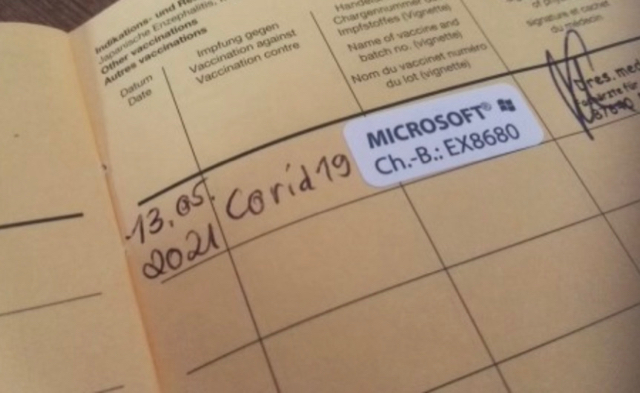 Indikations- und
Japanische Enzephalitis,
Other vaccinations
Autres vaccinations
Datum
Date
Impfung gegen
Vaccination against
Vaccination contre
Chargennummer
Impfstoffes (Vignette)
Name of vaccine and
batch no. (vignette)
Nom du vaccinet numéro
du lot (vignette)
signature et cachet
du médecin
13.05.
2021
Covid19
MICROSOFT®
Ch.-B.: EX8680